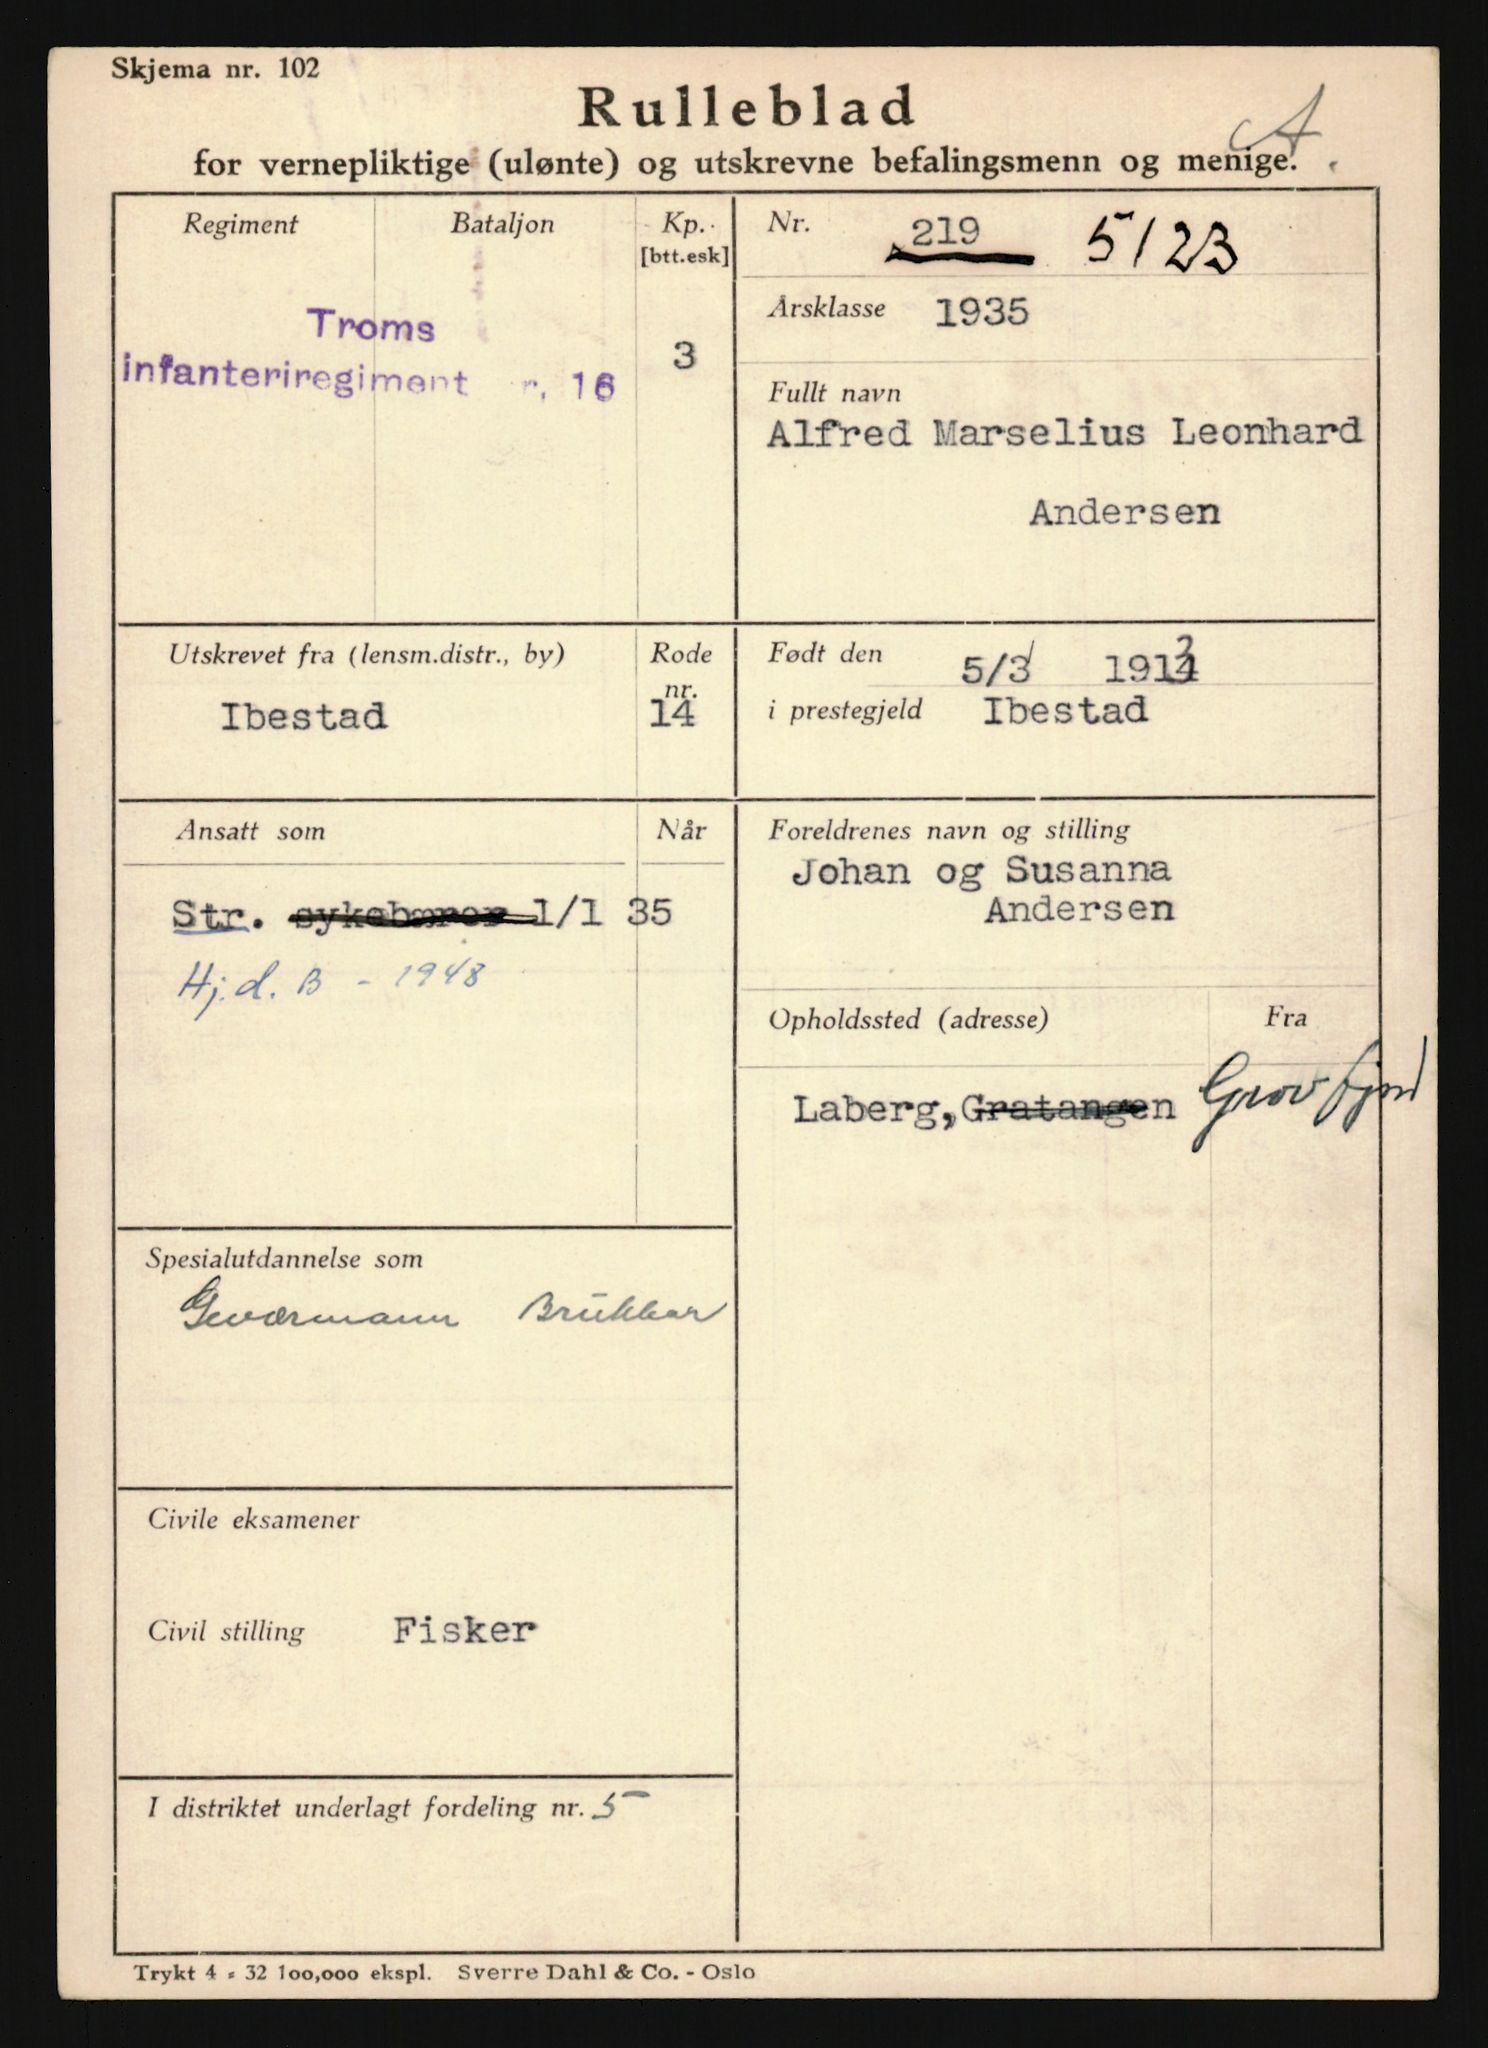 Skjema nr. 102
Rulleblad
A
for vernepliktige (ulønte) og utskrevne befalingsmenn og menige.
Regiment
Bataljon
Kp.
[btt.esk]
Troms
infanteriregiment r. 16
3
Nr. 219 5123
Årsklasse 1935
Fullt navn
Alfred Marselius Leonhard
Andersen
Utskrevet fra (lensm.distr., by)
Ibestad
Rode
nr.
14
Født den 5/3 1913
i prestegjeld Ibestad
Ansatt som
Når
Str. sykebærer 1/1 35
Hj. d. B - 1948
Foreldrenes navn og stilling
Johan og Susanna
Andersen
Opholdssted (adresse)
Fra
Laberg, Gratangen Grovfjord
Spesialutdannelse som
Geværmann
Civile eksamener
Civil stilling Fisker
I distriktet underlagt fordeling nr. 5
Trykt 4 - 32 100,000 ekspl. Sverre Dahl & Co. - Oslo